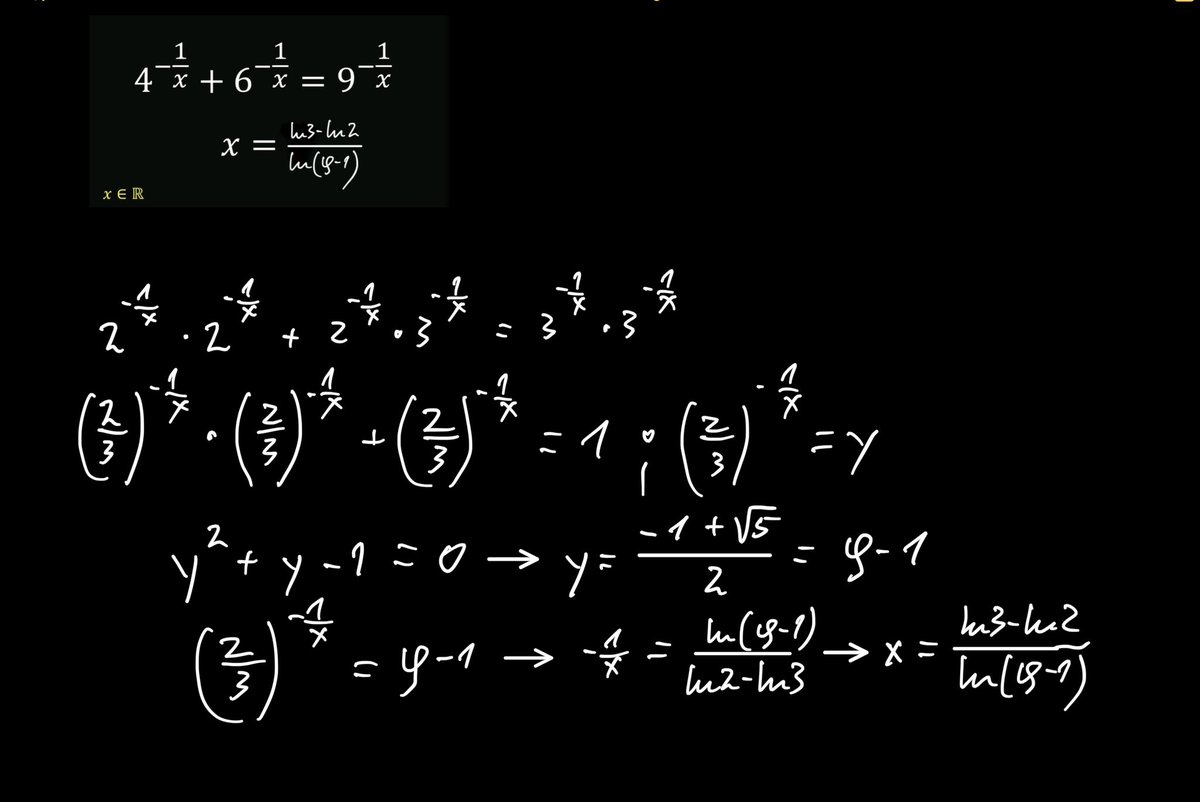 4^{-\frac{1}{x}} + 6^{-\frac{1}{x}} = 9^{-\frac{1}{x}}
x = \frac{ln3-ln2}{ln(φ-1)}
x ∈ ℝ
2^{-\frac{1}{x}} · 2^{-\frac{1}{x}} + 2^{-\frac{1}{x}} · 3^{-\frac{1}{x}} = 3^{-\frac{1}{x}} · 3^{-\frac{1}{x}}
(\frac{2}{3})^{-\frac{1}{x}} · (\frac{2}{3})^{-\frac{1}{x}} + (\frac{2}{3})^{-\frac{1}{x}} = 1 ; (\frac{2}{3})^{-\frac{1}{x}} = y
y^2 + y - 1 = 0 → y = \frac{-1+\sqrt{5}}{2} = φ-1
(\frac{2}{3})^{-\frac{1}{x}} = φ-1 → -\frac{1}{x} = \frac{ln(φ-1)}{ln2-ln3} → x = \frac{ln3-ln2}{ln(φ-1)}